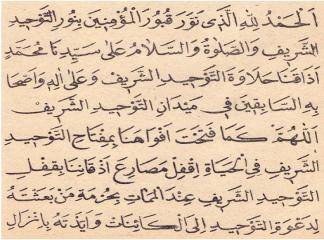 اَلْحَمْدُ لِلّٰهِ الَّذِى نَوَّرَ قُبُورَ الْمُؤْمِنِينَ بِنُورِ التَّوْحِيدِ
الشَّرِيفِ وَالصَّلٰوةُ وَالسَّلَامُ عَلٰى سَيِّدِنَا مُحَمَّدٍ
اَذَاقَنَا حَلَاوَةَ التَّوْحِيدِ الشَّرِيفِ وَعَلٰى اٰلِهِ وَاصْحَا
بِهِ السَّابِقِينَ فِى مَيْدَانِ التَّوْحِيدِ الشَّرِيفِ
اَللّٰهُمَّ كَمَا فَتَحْتَ اَفْوَاهَنَا بِمِفْتَاحِ التَّوْحِيدِ
الشَّرِيفِ فِى الْحَيَاةِ اِقْفِلْ مَصَارِعَ اَذْقَانِنَا بِقُفْلِ
التَّوْحِيدِ الشَّرِيفِ عِنْدَ الْمَمَاتِ بِحُرْمَةِ مَنْ بَعَثْتَهُ
لِدَعْوَةِ التَّوْحِيدِ اِلَى الْكَائِنَاتِ وَاَيَّدْتَهُ بِاِنْزَالِ